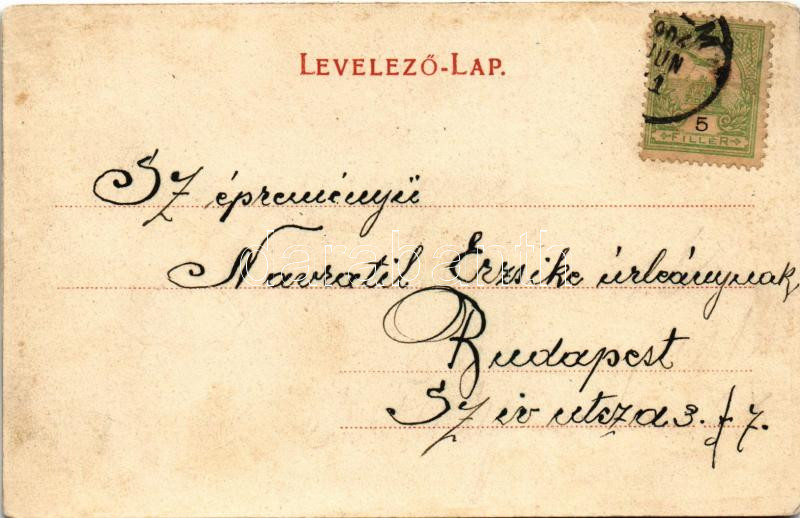 LEVELEZŐ-LAP.
904
JUN
1
5
FILLÉR
Szépreményü
Navratil Erzsike úrleánynak
Budapest
Sziv utsza 3. f 7.